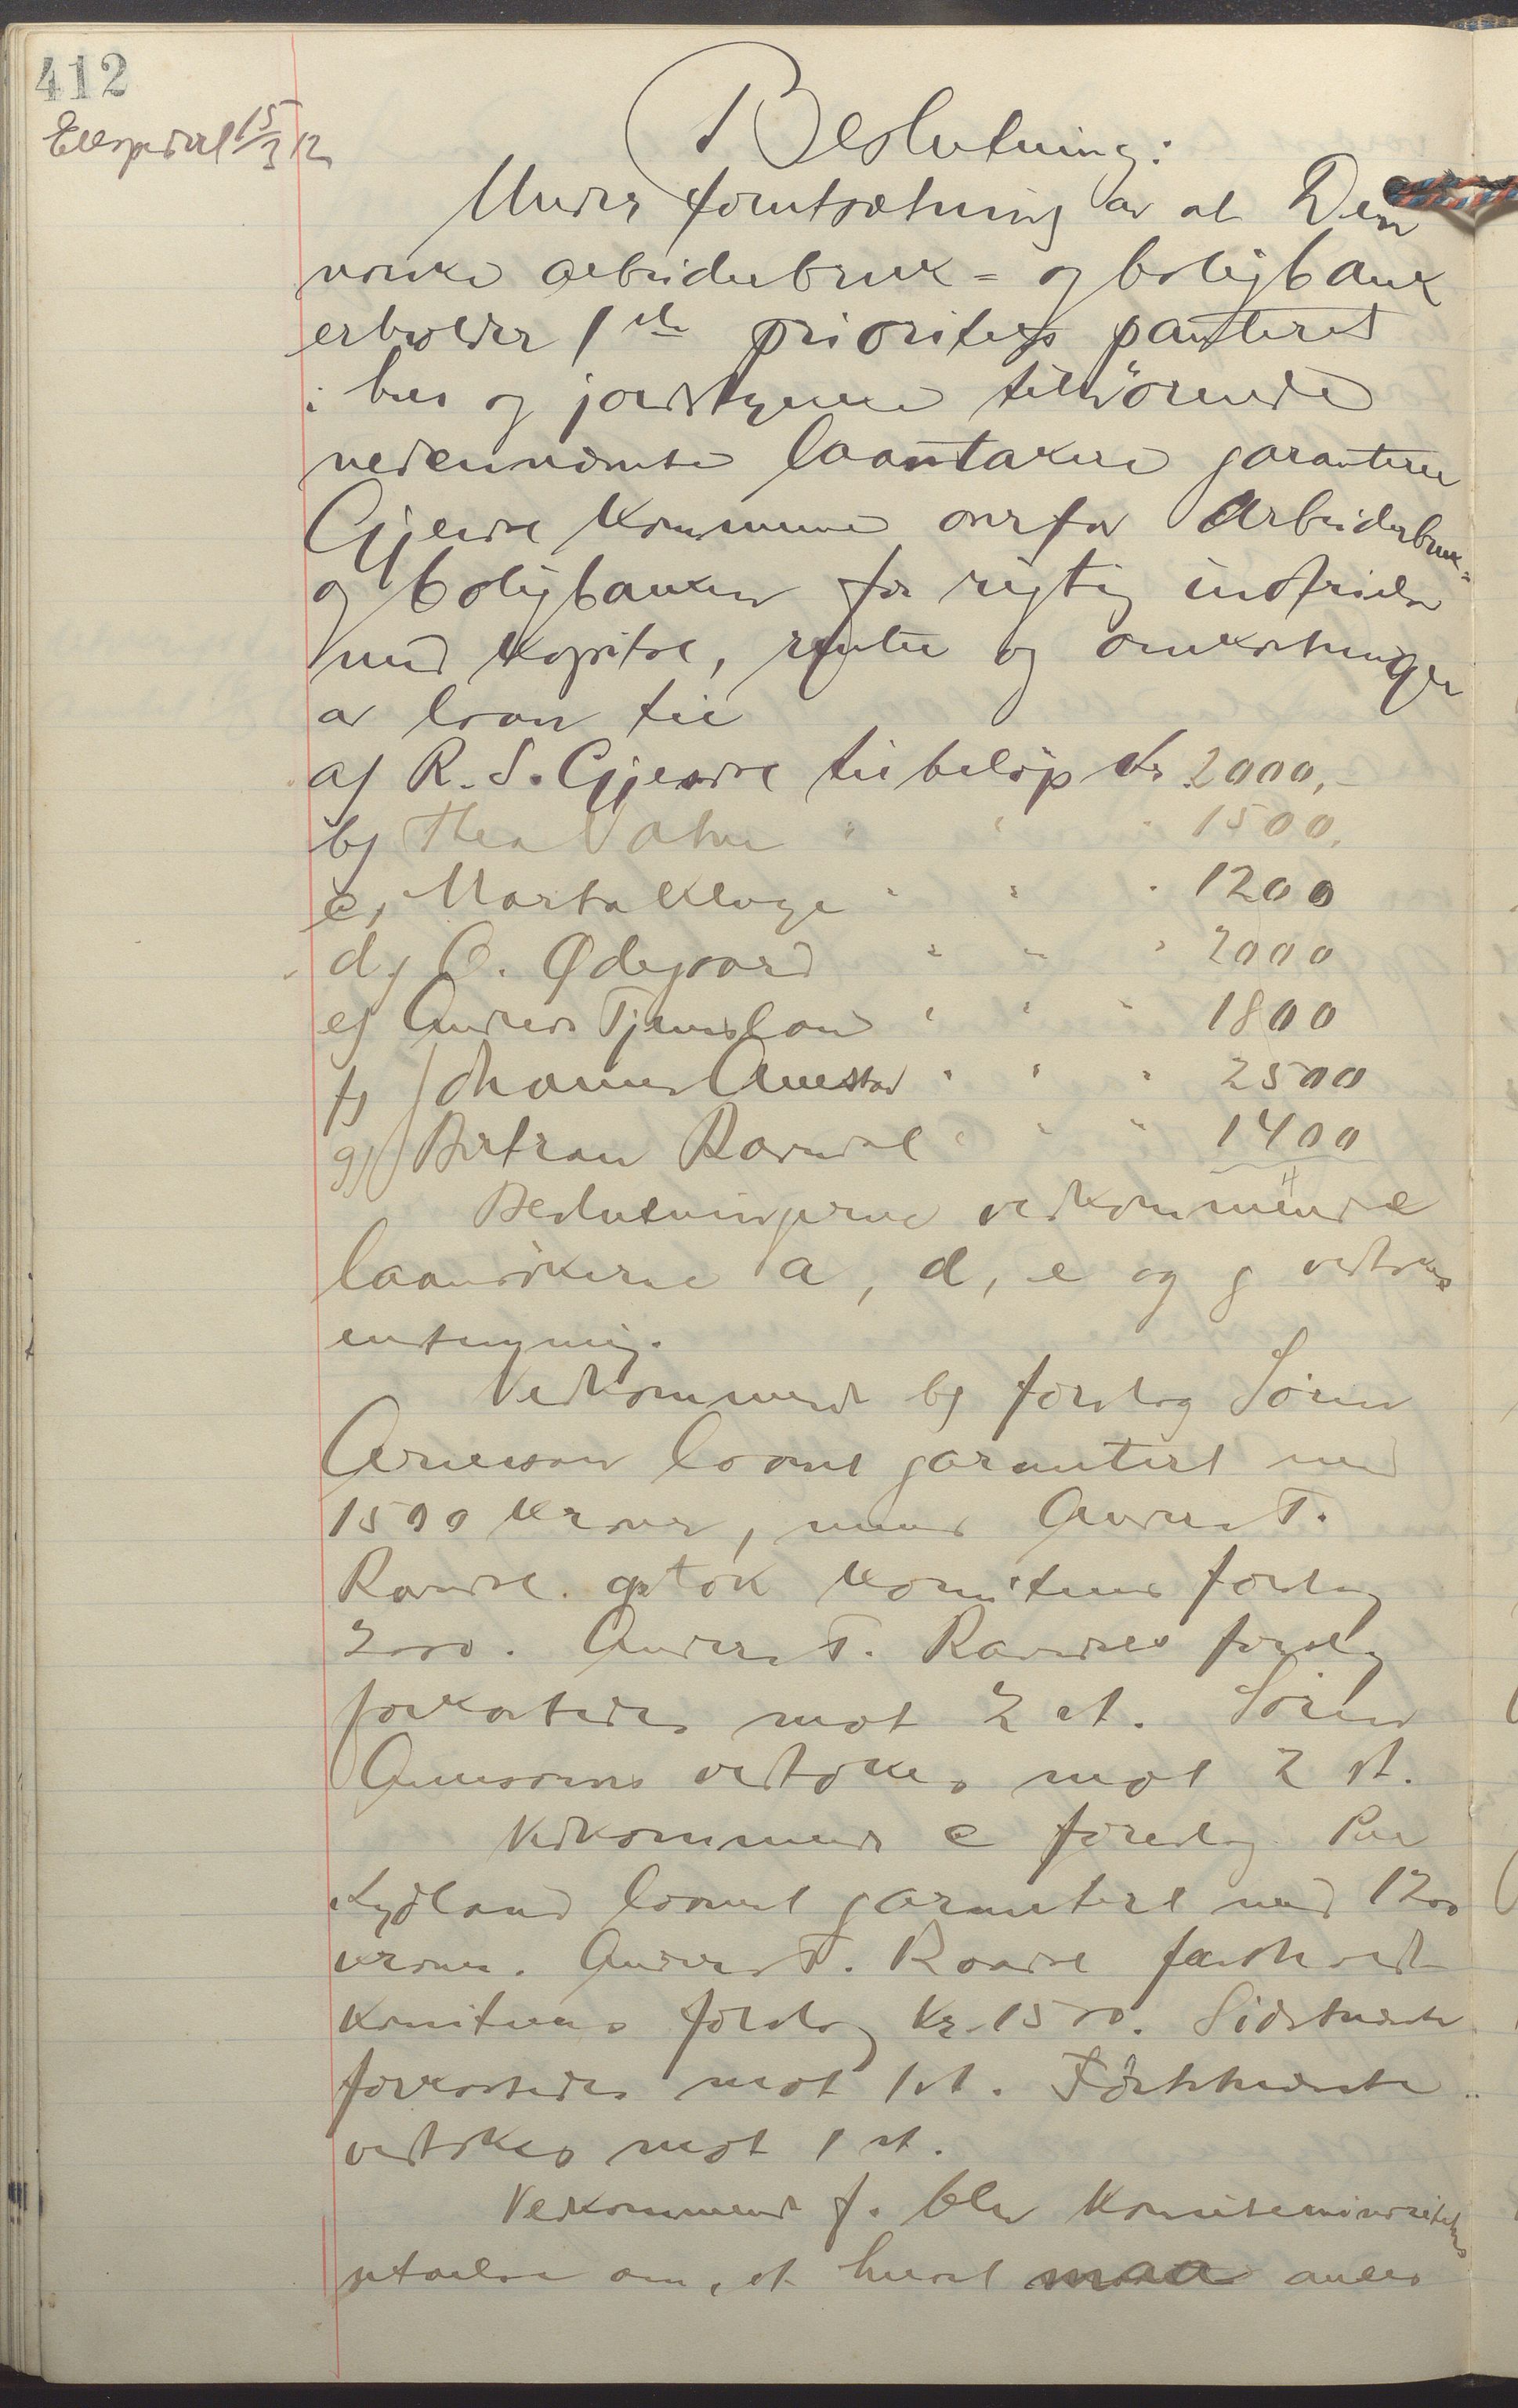 412
Ekspedert 15/3 12
Beslutning:
Under forutsætning av at Den
norske arbeiderbruk- og boligbank
erholder 1ste prioritets panteret
i hus og jordstykkene tilhörende
nedennævnte laantakere garanterer
Gjesdal kommune overfor Arbeiderbruk-
og boligbanken for rigtig indfrielse
med kapital, renter og omkostninger
av laan til
a) R. S. Gjesdal til beløp Kr. 2000,-
b) Thea Vatne " " " 1500,
c, Marta Kluge " " " 1200
d, O. Ødegaard " " " 2000
e) Anders Tjensland " " " 1800
f) Johannes Auestad " " " 2500
g) Bertran Ravndal " " " 1400
Beslutningerne vedkommende
laansökerne a, d, e og g vedtokes
enstemmig.
Vedkommende b) foreslog Sören
Arneson laanet garantert med
1500 kroner, mens Anders T.
Ravndal optok komiteens forslag
2000. Anders T. Ravndals forslag
forkastedes mot 2 st. Sören
Arnesons vedtokes mot 2 st.
Vedkommende c foreslog Per
Kydland laanet garantert med 1200
kroner. Anders T. Ravndal fastholdt
komiteens forslag Kr. 1500. Sidstnævnte
forkastedes mot 1 st. Förstnævnte
vedtokes mot 1 st.
Vedkommende f. blev komiteminoritetens
uttalelse om, at huset maa ansees